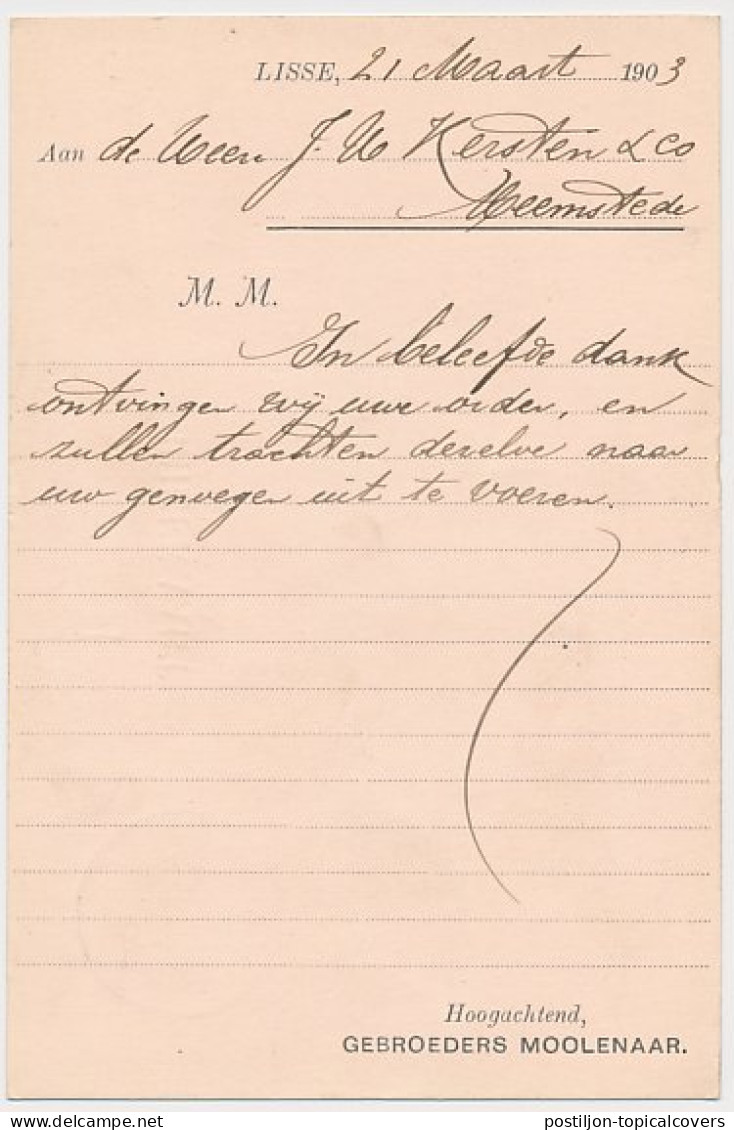 LISSE, 21 Maart 1903
Aan de Heeren J. H Kersten & Co
Heemstede
M. M.
In beleefde dank
ontvingen wij uwe order, en
zullen trachten dezelve naar
uw genoegen uit te voeren.
Hoogachtend,
GEBROEDERS MOOLENAAR.
postiljon-topicalcovers